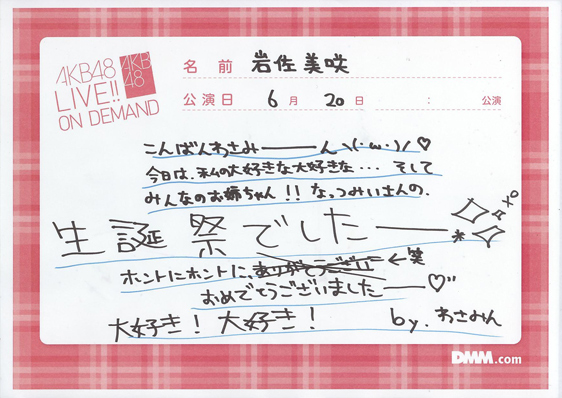 AKB48
LIVE!!
ON DEMAND
AKB
48
名前 岩佐美咲
公演日 6月20日 : 公演
こんばんわさみーーーん\(・ω・)/♡
今日は、私の大好きな大好きな... そして
みんなのお姉ちゃん!! なっつみぃさんの、
生誕祭でしたーーー
ホントにホントに、ありがとうござい ←笑
おめでとうございましたーー♡
大好き! 大好き! by. わさみん
DMM.com